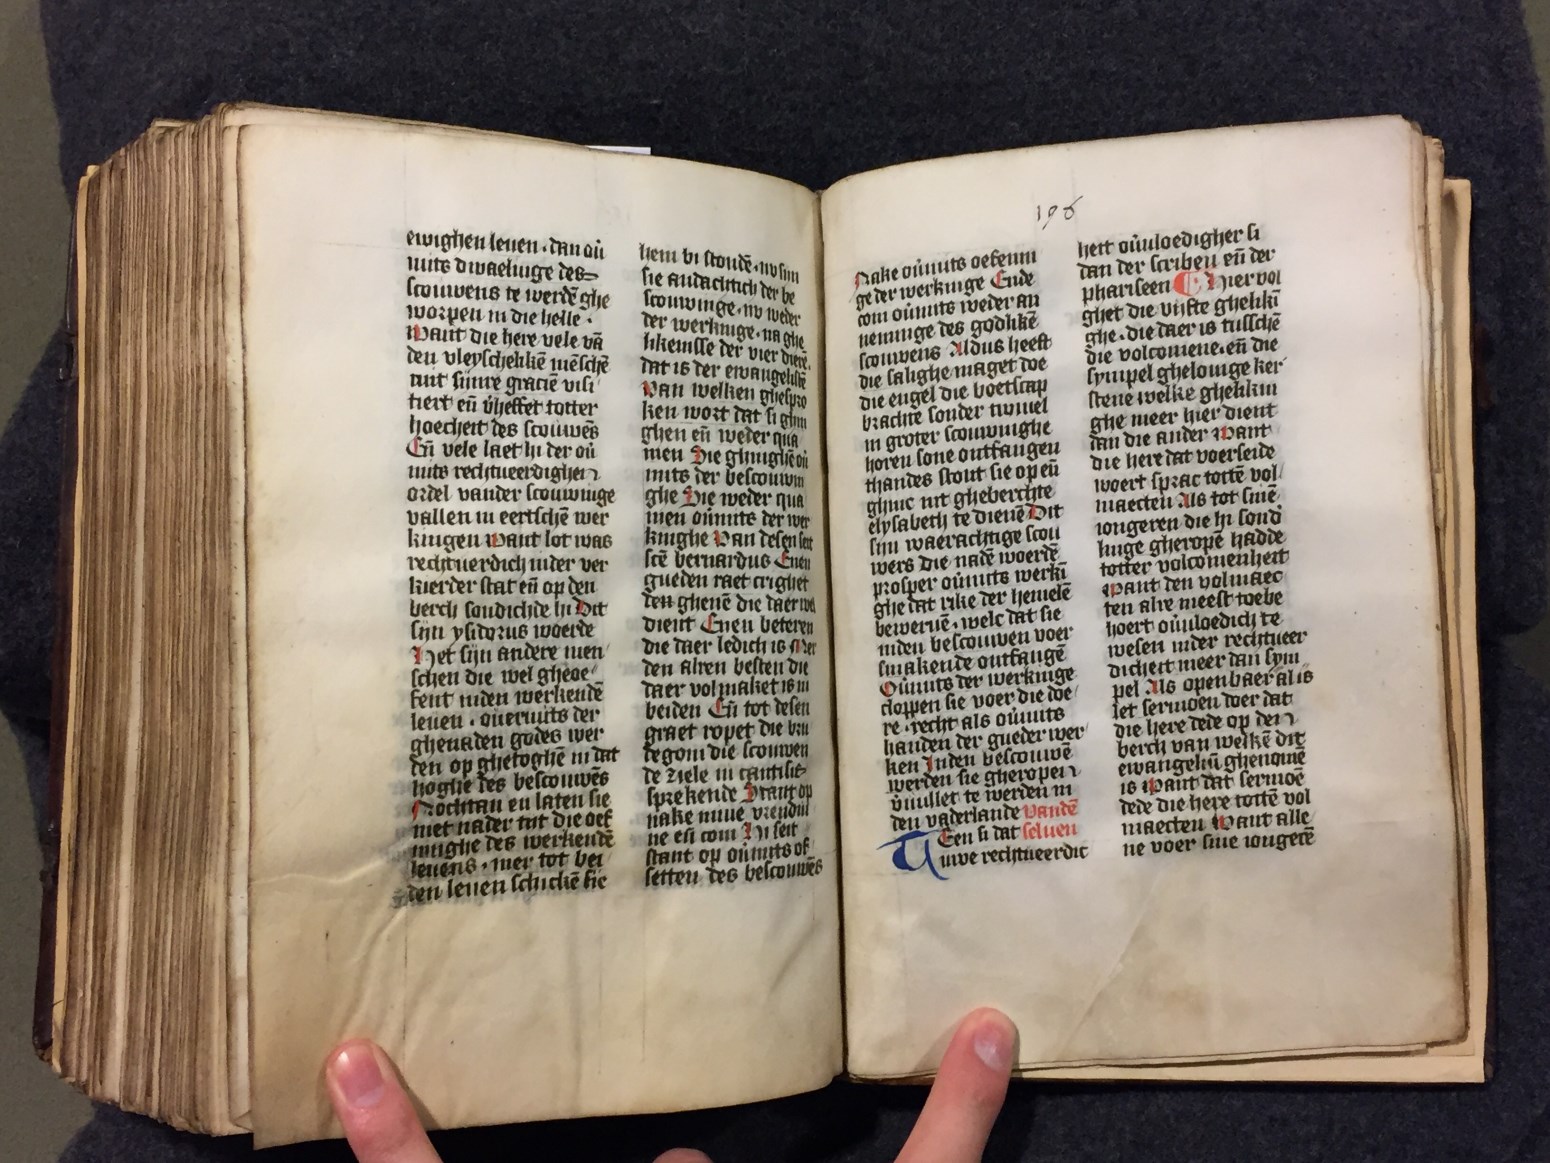 ewighen leuen · dan oū
mits dwaelinge des=
scouwens te werdē ghe
worpen in die helle ·
Want die here vele vā
den vleyschelikē mēschē
mit sijnre graciēn visi
tiert eñ v̄heffet totter
hoecheit des scouwēs
Eñ vele laet hi der oū
mits rechtueerdigher
ordel vander scouwinge
vallen in eertschē wer
kingen Want lot was
rechtuerdich inder ver
kierder stat eñ op den
berch sondichde hi Dit
sijn ysidorus woerde
Het sijn andere men
schen die wel gheoe
fent inden werkendē
leuen · ouermits der
ghenaden godes wer
den op ghetoghē in dat
hoghe des bescouwēs
Nochtan en laten sie
niet nader tijt die oef
ninghe des werkendē
leuens · mer tot bei
den leuen schickē sie
hem bi stondē · nv sijn
sie andachtich der be
scouwinge · nv weder
der werkinge · na ghe
likenisse der vier dierē
dat is der ewangelistē
Van welken ghespro
ken wort dat si ghin
ghen eñ weder qua
men Die ghinghē oū
mits der bescouwin
ghe Die weder qua
men oūmits der wer
kinghe Van desen seit
scē bernardus Enen
gueden raet crighet
den ghenē die daer wel
dient Enen beteren
die daer ledich is Mer
den alren besten die
daer volmaket is in
beiden Eñ tot desen
graet ropet die bru
degom die scouwen
de ziele in cantisiē
sprekende Stant op
nake mine vrendin
ne eñ com Hi seit
stant op oūmits of
setten des bescouwēs
196
Nake oūmits oefenin
ge der werkinge Ende
com oūmits weder an
neminge des godlikē
scouwens Aldus heeft
die salighe maget doe
die engel die boetscap
brachte sonder twiuel
in groter scouwinghe
horen sone ontfangen
thandes stont sie op eñ
ghinc int gheberchte
elysabeth te dienē Dit
sijn waerachtige scou
wers die nadē woerdē
prosper oūmits werki
ghe dat rike der hemelē
bewerūē · welc dat sie
inden bescouwen voer
smakende ontfangē
Oūmits der werkinge
cloppen sie voer die doe
re · recht als oūmits
handen der gueder wer
ken Inden bescouwē
werden sie gheropen
v̄uullet te werden in
den vaderlande Vandē
Een si dat seluen
Uwe rechtueerdic
heit oūuloedigher si
dan der scriben eñ der
phariseen Hier vol
ghet die vijfte ghelikī
ghe · die daer is tusschē
die volcomene · eñ die
sympel ghelouige ker
stene welke ghelikin
ghe meer hier dient
dan die ander Want
die here dat voerseide
woert sprac tottē vol
maecten Als tot sinē
iongeren die hi sond̄
linge gheropē hadde
totter volcomenheit
Want den volmaec
ten alre meest toebe
hoert oūuloedich te
wesen inder rechtueer
dicheit meer dan sym
pel Als openbaer al is
iet sermoen doer dat
die here dede op den
berch van welkē dit
ewangeliū ghenomē
is Want dat sermoē
dede die here tottē vol
maecten Want alle
ne voer sine iongerē